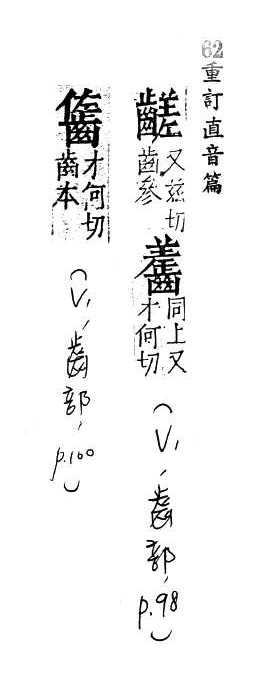 62重訂直音篇
又茲切
齒參
齹
同上又
才何切
(V, 齒部, p.98)
才何切
齒本
(V, 齒部, p.100)